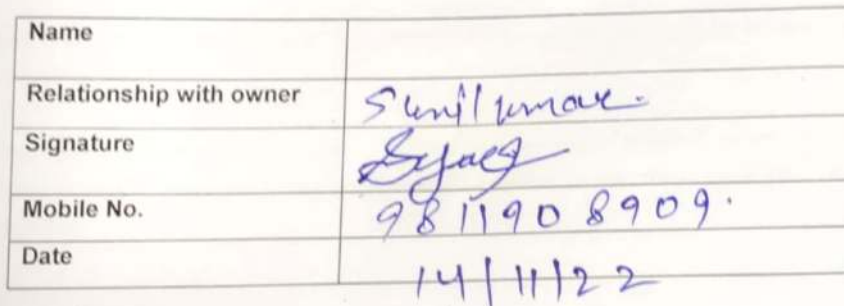 Name
Relationship with owner Sunil kumar.
Signature
Mobile No. 9811908909.
Date 14/11/22